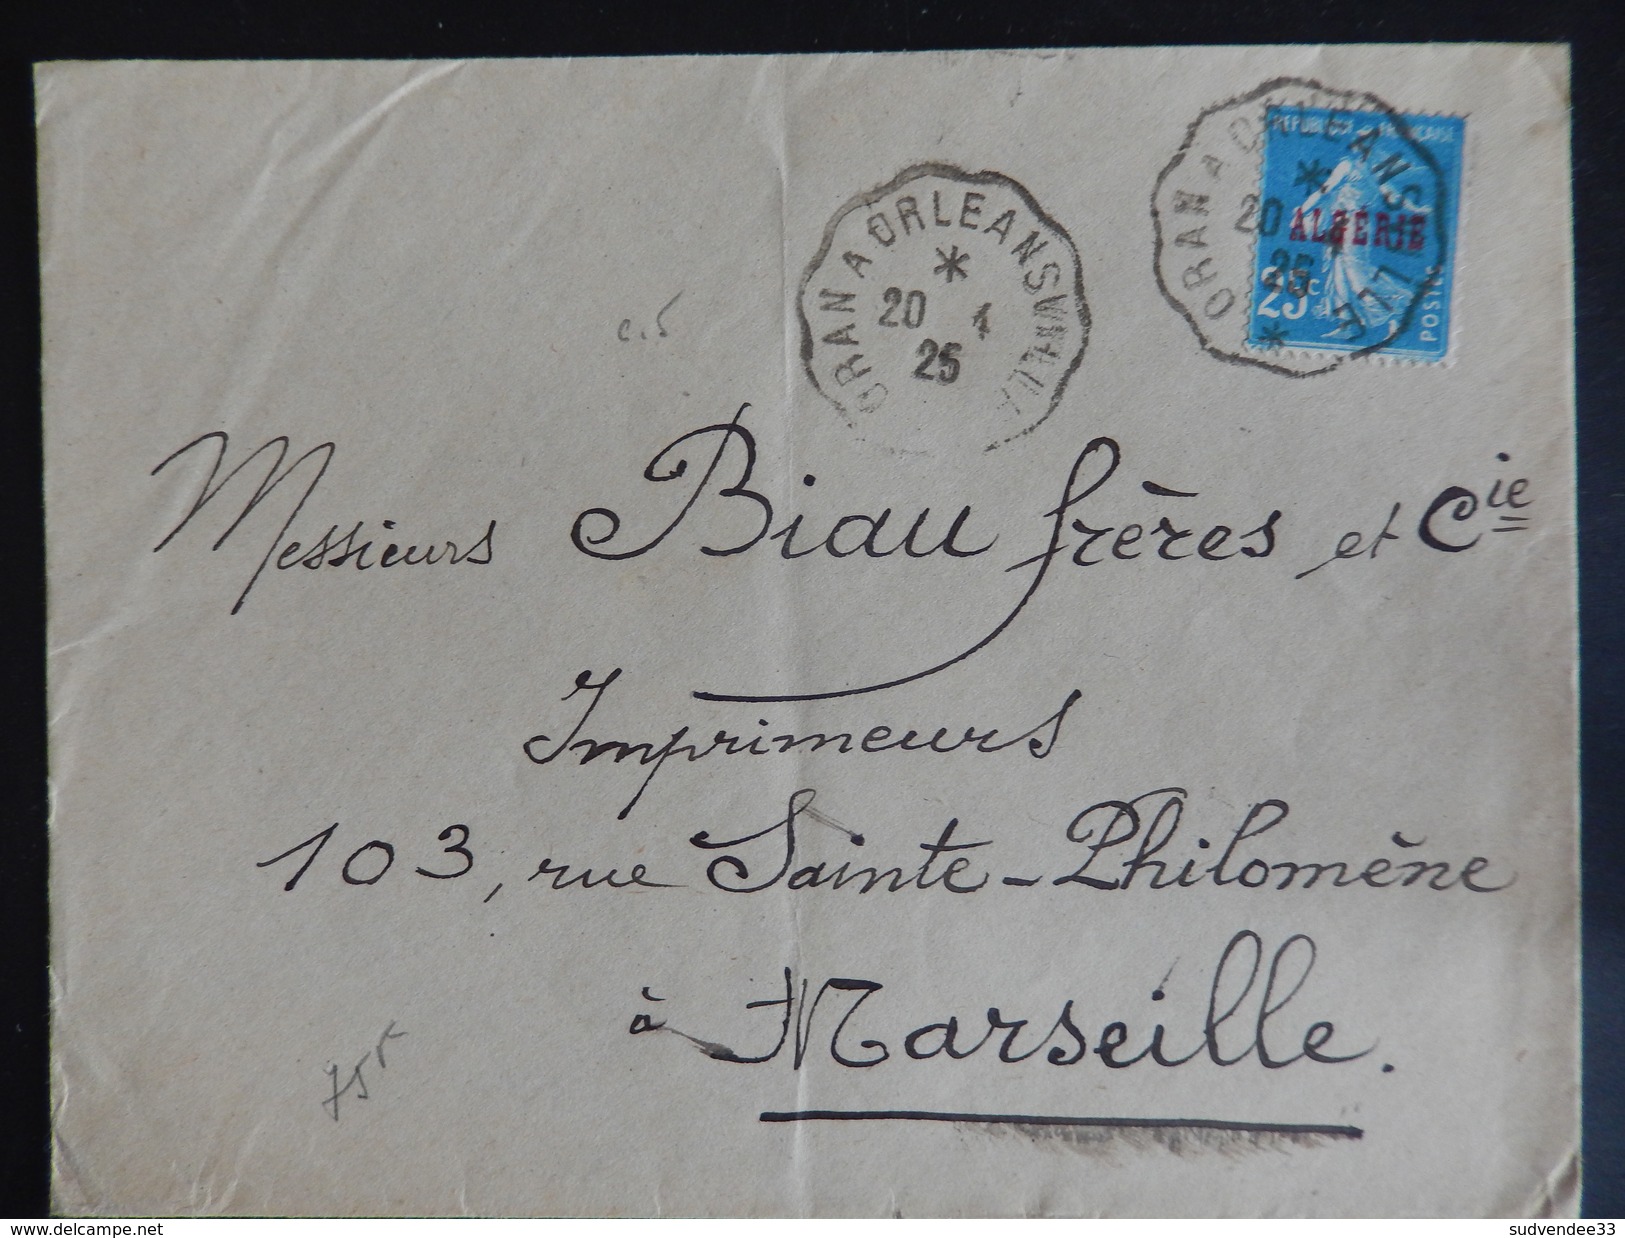 REPUBLIQUE FRANÇAISE
ALGÉRIE
25c
POSTES
ORAN A ORLEANSVILLE
20
25
ORAN A ORLEANSVILLE
20 1
25
c.5
Messieurs Biau frères et Cie
Imprimeurs
103, rue Sainte-Philomène
à Marseille.
www.delcampe.net
sudvendee33